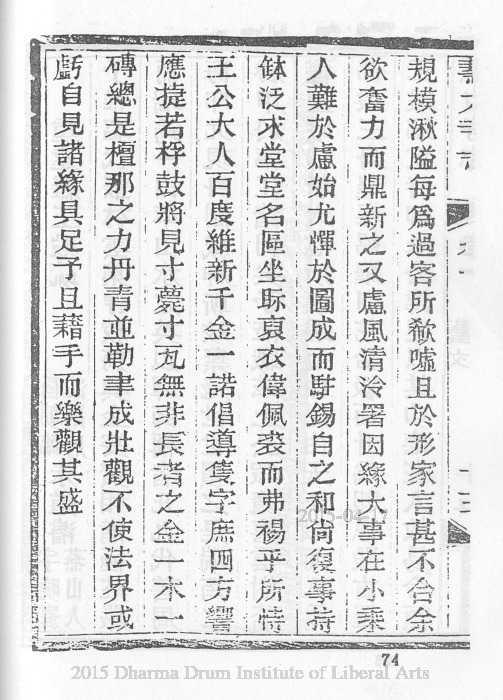 規模湫隘每爲過客所歎噓且於形家言甚不合余
欲奮力而鼎新之又慮風清泠署因緣大事在小乘
人難於慮始尤憚於圖成而駐錫自之和尙復事持
缽泛求堂堂名區坐眎袞衣偉佩裘而弗裼乎所恃
王公大人百度維新千金一諾倡導隻字庶四方響
應捷若桴鼓將見寸甍寸瓦無非長者之金一木一
磚總是檀那之力丹青並勒聿成壯觀不使法界或
虧自見諸緣具足予且藉手而樂觀其盛
74
2015 Dharma Drum Institute of Liberal Arts